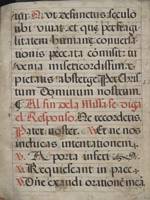 nr. Ut defunctus seculo
tibi vivat. et que per fragi
litatem humane conversa
tionis peccata comisit tu
venia misericordissime
pietatis absterge. Per Chris
tum Dominum nostrum.
Al fin de la Missa se diga
el Responso. Ne recorderis.
Pater noster. Et ne nos
inducas intentationem.
A porta inferi
Requiescant in pace
Dñe exaudi orationē meā